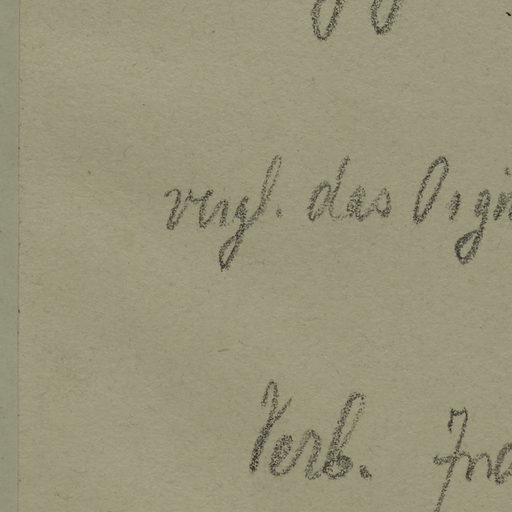 vergl. das Origin
Verb.